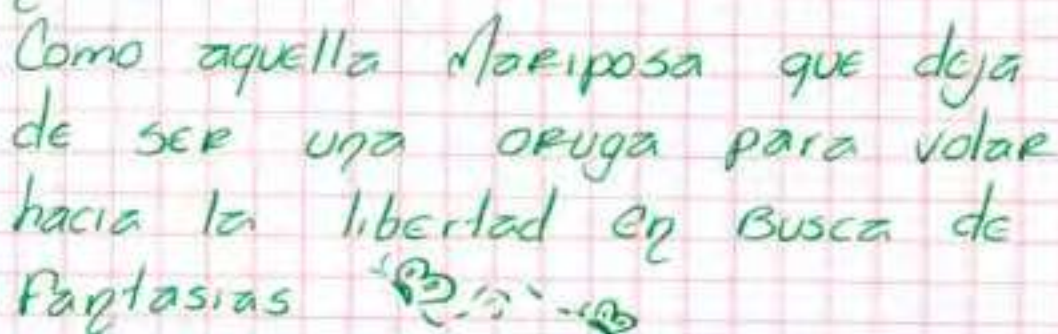 Como aquella Mariposa que deja
de ser una oruga para volar
hacia la libertad en Busca de
Fantasias